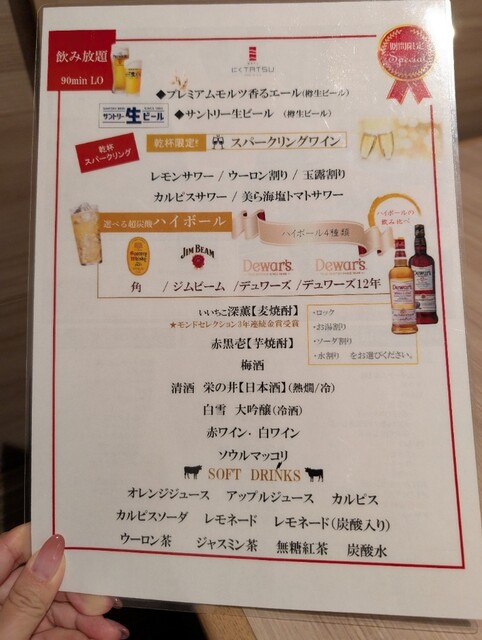 飲み放題
90min LO
期間限定
Special
◆プレミアムモルツ香るエール(樽生ビール)
◆サントリー生ビール (樽生ビール)
サントリー生ビール
乾杯
スパークリング
乾杯限定! スパークリングワイン
レモンサワー / ウーロン割り / 玉露割り
カルピスサワー / 美ら海塩トマトサワー
選べる超炭酸ハイボール
ハイボール4種類
ハイボールの
飲み比べ
JIM BEAM
Dewar's
Dewar's
角 /ジムビーム /デュワーズ /デュワーズ12年
Dewar's
Dewar's
いいちこ深薫【麦焼酎】
★モンドセレクション3年連続金賞受賞
赤黒壱【芋焼酎】
・ロック
・お湯割り
・ソーダ割り
・水割り をお選びください。
梅酒
清酒 栄の井【日本酒】(熱燗/冷)
白雪 大吟醸(冷酒)
赤ワイン・白ワイン
ソウルマッコリ
SOFT DRINKS
オレンジジュース アップルジュース カルピス
カルピスソーダ レモネード レモネード(炭酸入り)
ウーロン茶 ジャスミン茶 無糖紅茶 炭酸水